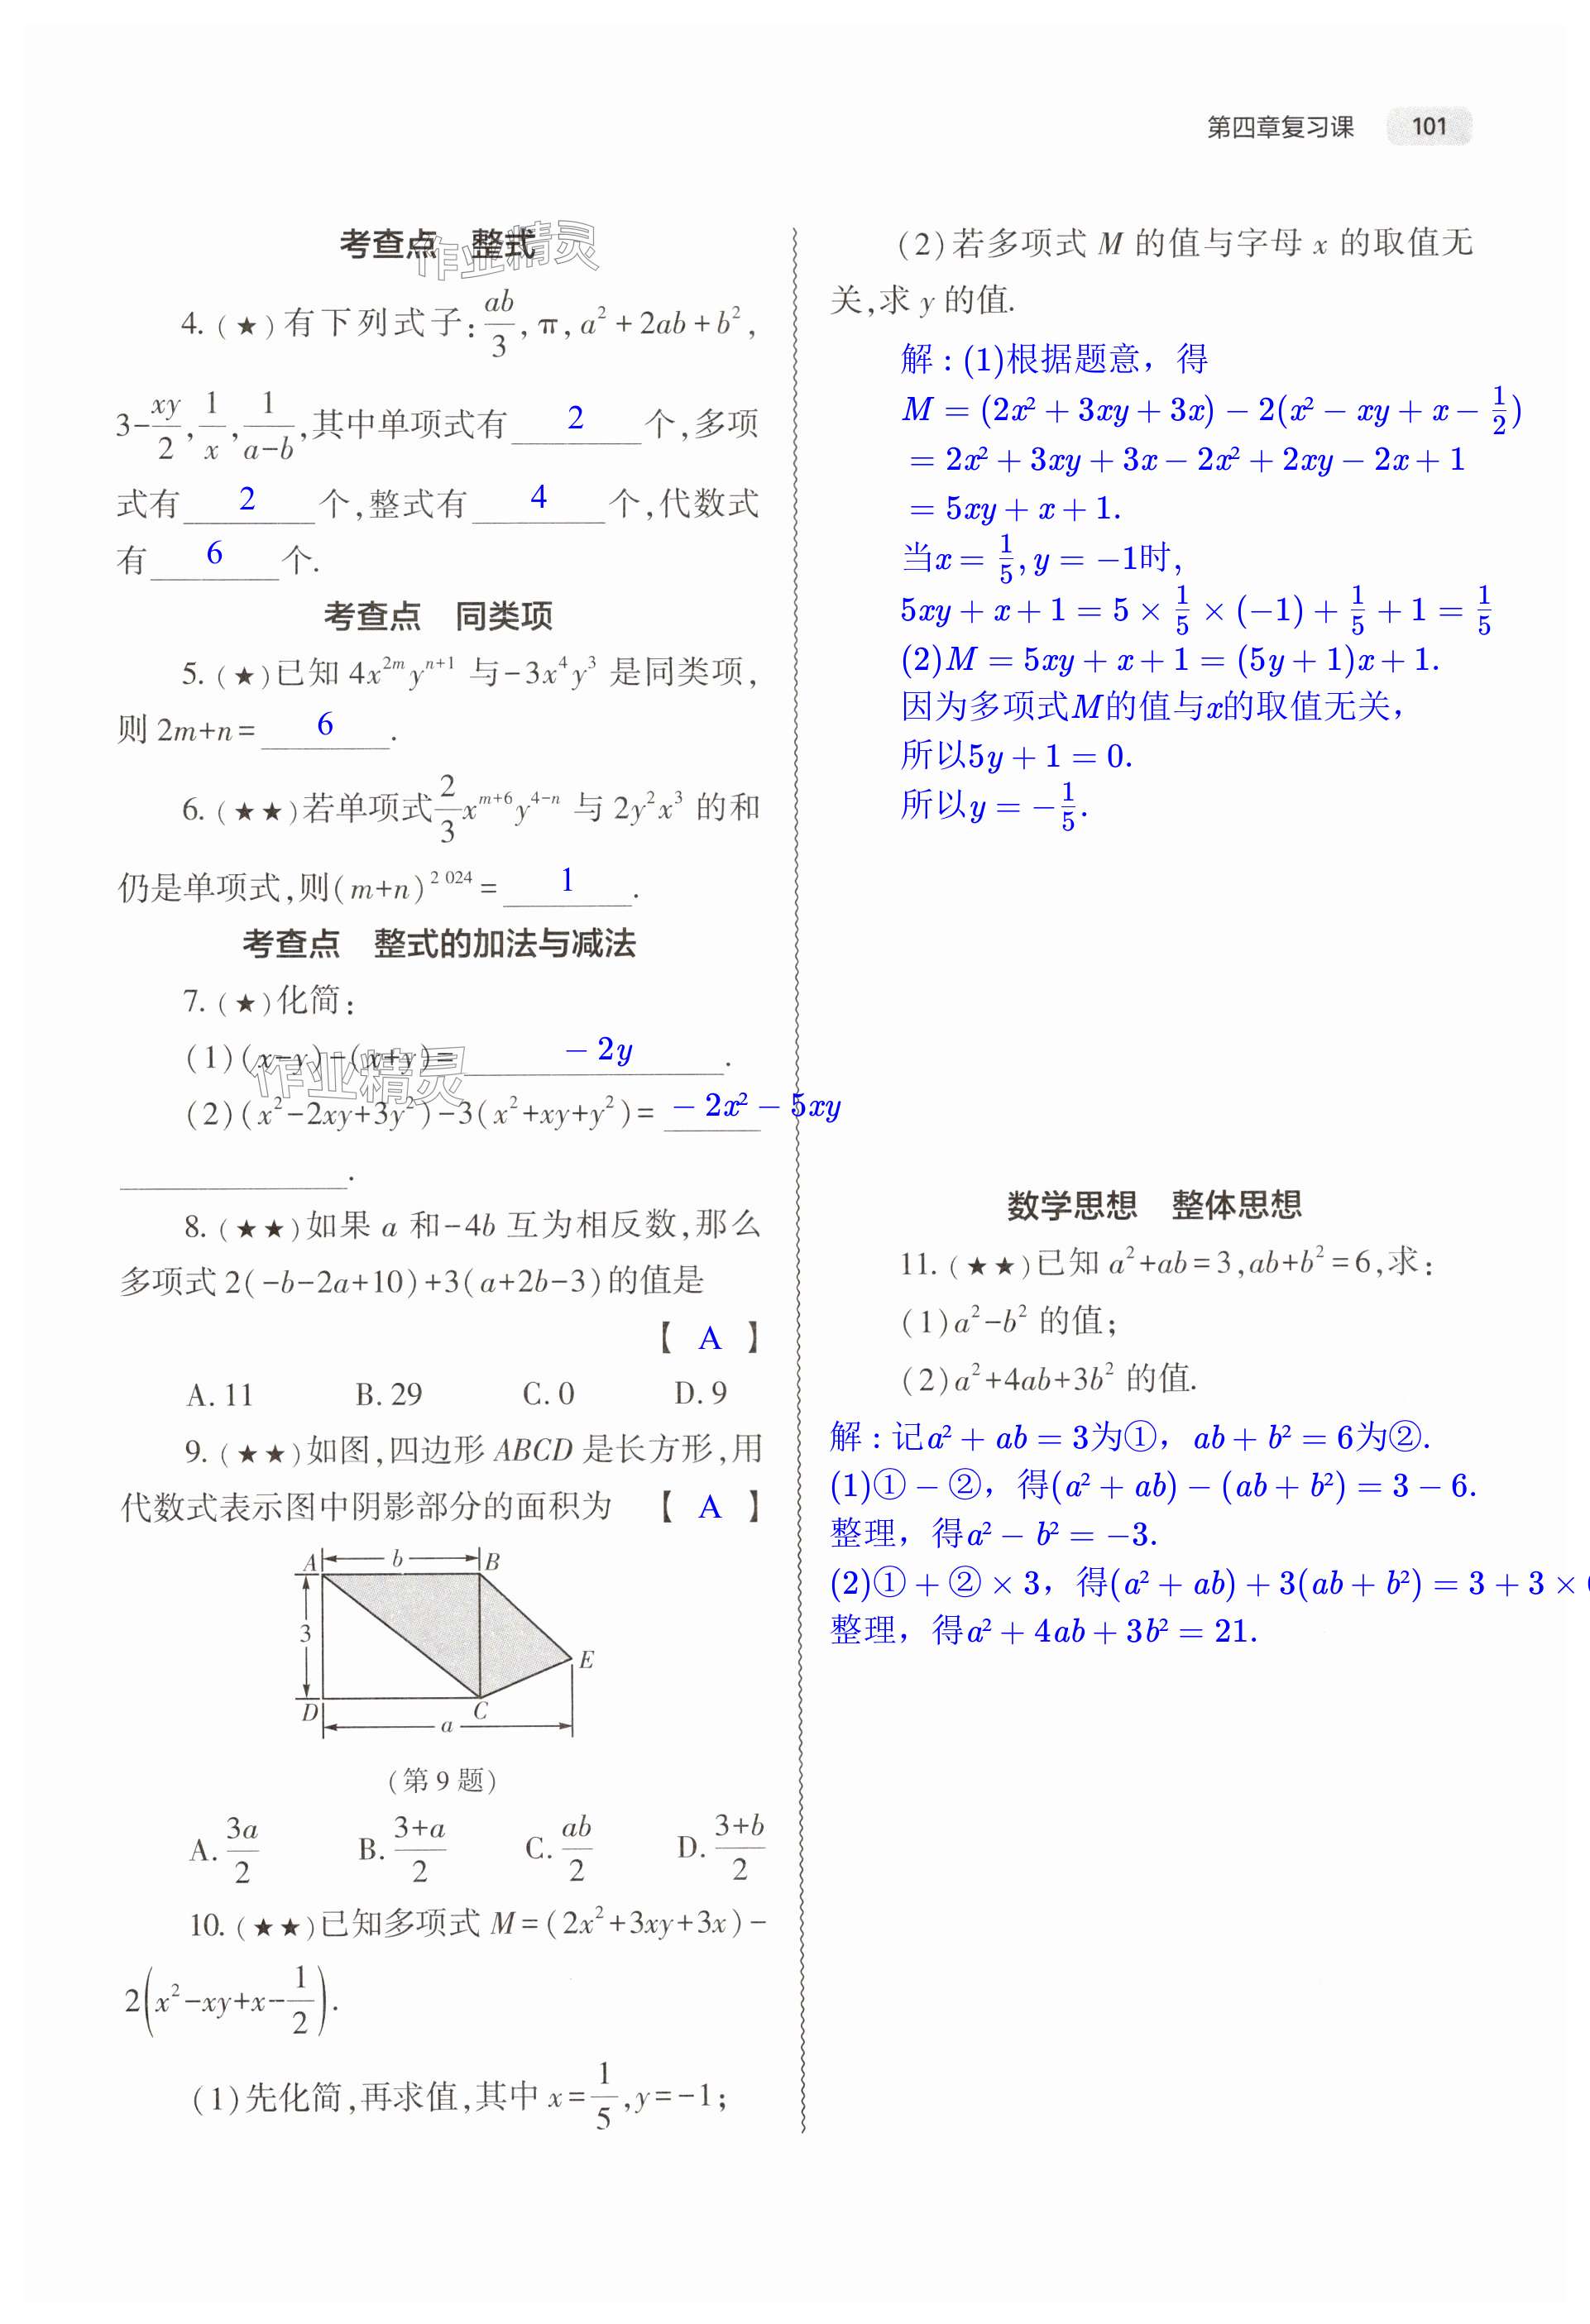 第四章复习课 101
考查点 整式
作业精灵
4. (★)有下列式子: ab/3, π, a²+2ab+b²,
3-xy/2, 1/x, 1/(a-b), 其中单项式有 2 个,多项
式有 2 个,整式有 4 个,代数式
有 6 个.
考查点 同类项
5. (★)已知 4x^{2m}y^{n+1} 与-3x⁴y³ 是同类项,
则 2m+n= 6 .
6. (★★)若单项式 2/3 x^{m+6}y^{4-n} 与 2y²x³ 的和
仍是单项式,则(m+n)^{2 024}= 1 .
考查点 整式的加法与减法
7. (★)化简:
(1)(x-y)-(x+y)= -2y .
作业精灵
(2)(x²-2xy+3y²)-3(x²+xy+y²)= -2x²-5xy
.
8. (★★)如果 a 和-4b 互为相反数,那么
多项式 2(-b-2a+10)+3(a+2b-3)的值是
【 A 】
A. 11 B. 29 C. 0 D. 9
9. (★★)如图,四边形 ABCD 是长方形,用
代数式表示图中阴影部分的面积为 【 A 】
A b B
3
E
D C
a
(第 9 题)
A. 3a/2 B. (3+a)/2 C. ab/2 D. (3+b)/2
10. (★★)已知多项式 M=(2x²+3xy+3x)-
2(x²-xy+x-1/2).
(1)先化简,再求值,其中 x=1/5,y=-1;
(2)若多项式 M 的值与字母 x 的取值无
关,求 y 的值.
解:(1)根据题意，得
M=(2x²+3xy+3x)-2(x²-xy+x-1/2)
=2x²+3xy+3x-2x²+2xy-2x+1
=5xy+x+1.
当x=1/5,y=-1时,
5xy+x+1=5×1/5×(-1)+1/5+1=1/5
(2)M=5xy+x+1=(5y+1)x+1.
因为多项式M的值与x的取值无关,
所以5y+1=0.
所以y=-1/5.
数学思想 整体思想
11. (★★)已知 a²+ab=3,ab+b²=6,求:
(1)a²-b² 的值;
(2)a²+4ab+3b² 的值.
解:记a²+ab=3为①，ab+b²=6为②.
(1)①-②，得(a²+ab)-(ab+b²)=3-6.
整理，得a²-b²=-3.
(2)①+②×3，得(a²+ab)+3(ab+b²)=3+3×
整理，得a²+4ab+3b²=21.